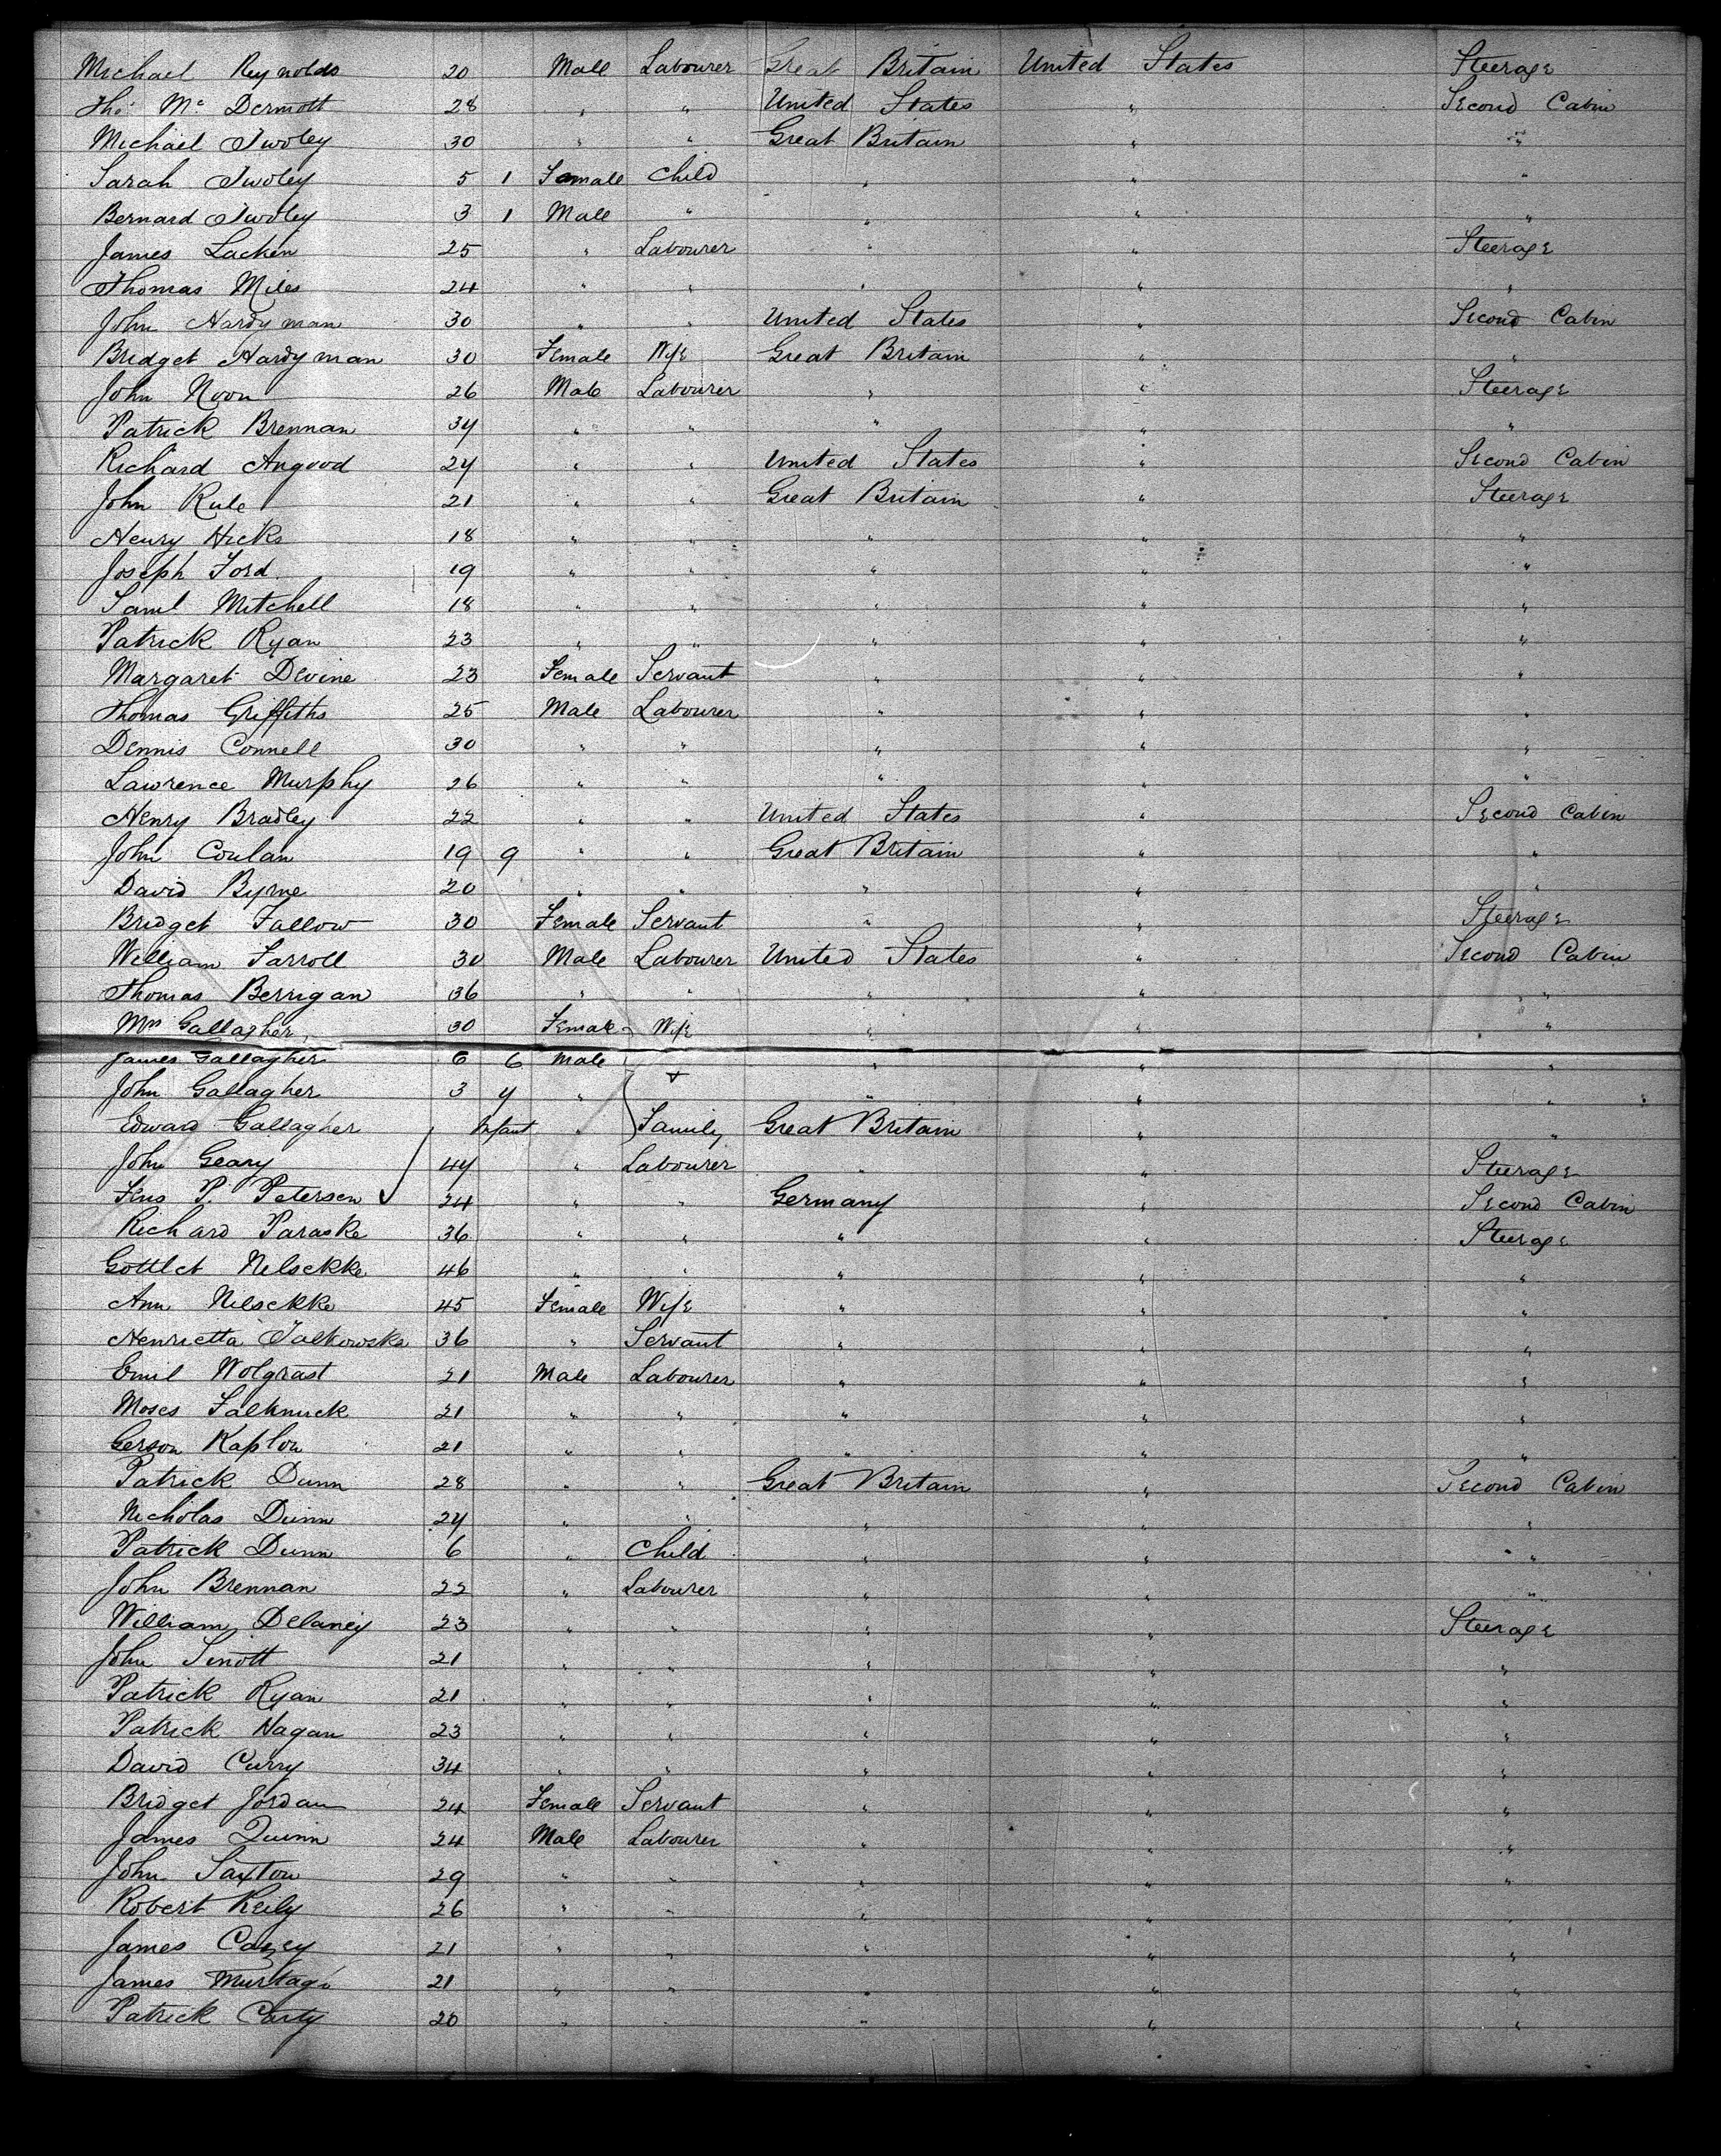 Michael Reynolds 20 Male Labourer Great Britain United States Steerage
Thos Mc Dermott 28 " " United States " Second Cabin
Michael Twoley 30 " " Great Britain " "
Sarah Twoley 5 1 Female Child " " "
Bernard Twoley 3 1 Male " " " "
James Lacken 25 " Labourer " " Steerage
Thomas Miles 24 " " " " "
John Hardyman 30 " " United States " Second Cabin
Bridget Hardyman 30 Female Wife Great Britain " "
John Noon 26 Male Labourer " " Steerage
Patrick Brennan 34 " " " " "
Richard Angood 24 " " United States " Second Cabin
John Rule 21 " " Great Britain " Steerage
Henry Hicks 18 " " " " "
Joseph Ford 19 " " " " "
Saml Mitchell 18 " " " " "
Patrick Ryan 23 " " " " "
Margaret Devine 23 Female Servant " " "
Thomas Griffiths 25 Male Labourer " " "
Dennis Connell 30 " " " " "
Lawrence Murphy 26 " " " " "
Henry Bradley 22 " " United States " Second Cabin
John Conlan 19 9 " " Great Britain " "
David Byrne 20 " " " " "
Bridget Fallow 30 Female Servant " " Steerage
William Farroll 30 Male Labourer United States " Second Cabin
Thomas Berrigan 36 " " " " "
Mrs Gallagher 30 Female Wife " " "
James Gallagher 6 6 Male " " "
John Gallagher 3 4 " + " " "
Edward Gallagher Infant " Family Great Britain " "
John Geary 44 " Labourer " " Steerage
Jens P. Petersen 24 " " Germany " Second Cabin
Richard Paraske 36 " " " " Steerage
Gottlet Nelsekke 46 " " " " "
Ann Nelsekke 45 Female Wife " " "
Henrietta 36 " Servant " " "
Emil Wolgrast 21 Male Labourer " " "
Moses Falknuck 21 " " " " "
Gerson Kaplon 21 " " " " "
Patrick Dunn 28 " " Great Britain " Second Cabin
Nicholas Dunn 24 " " " " "
Patrick Dunn 6 " Child " " "
John Brennan 22 " Labourer " " "
William Delaney 23 " " " " Steerage
John Sinott 21 " " " " "
Patrick Ryan 21 " " " " "
Patrick Hagan 23 " " " " "
David Curry 34 " " " " "
Bridget Jordan 24 Female Servant " " "
James Quinn 24 Male Labourer " " "
John Saxton 29 " " " " "
Robert Reily 26 " " " " "
James Casey 21 " " " " "
James Murtagh 21 " " " " "
Patrick Carty 20 " " " " "